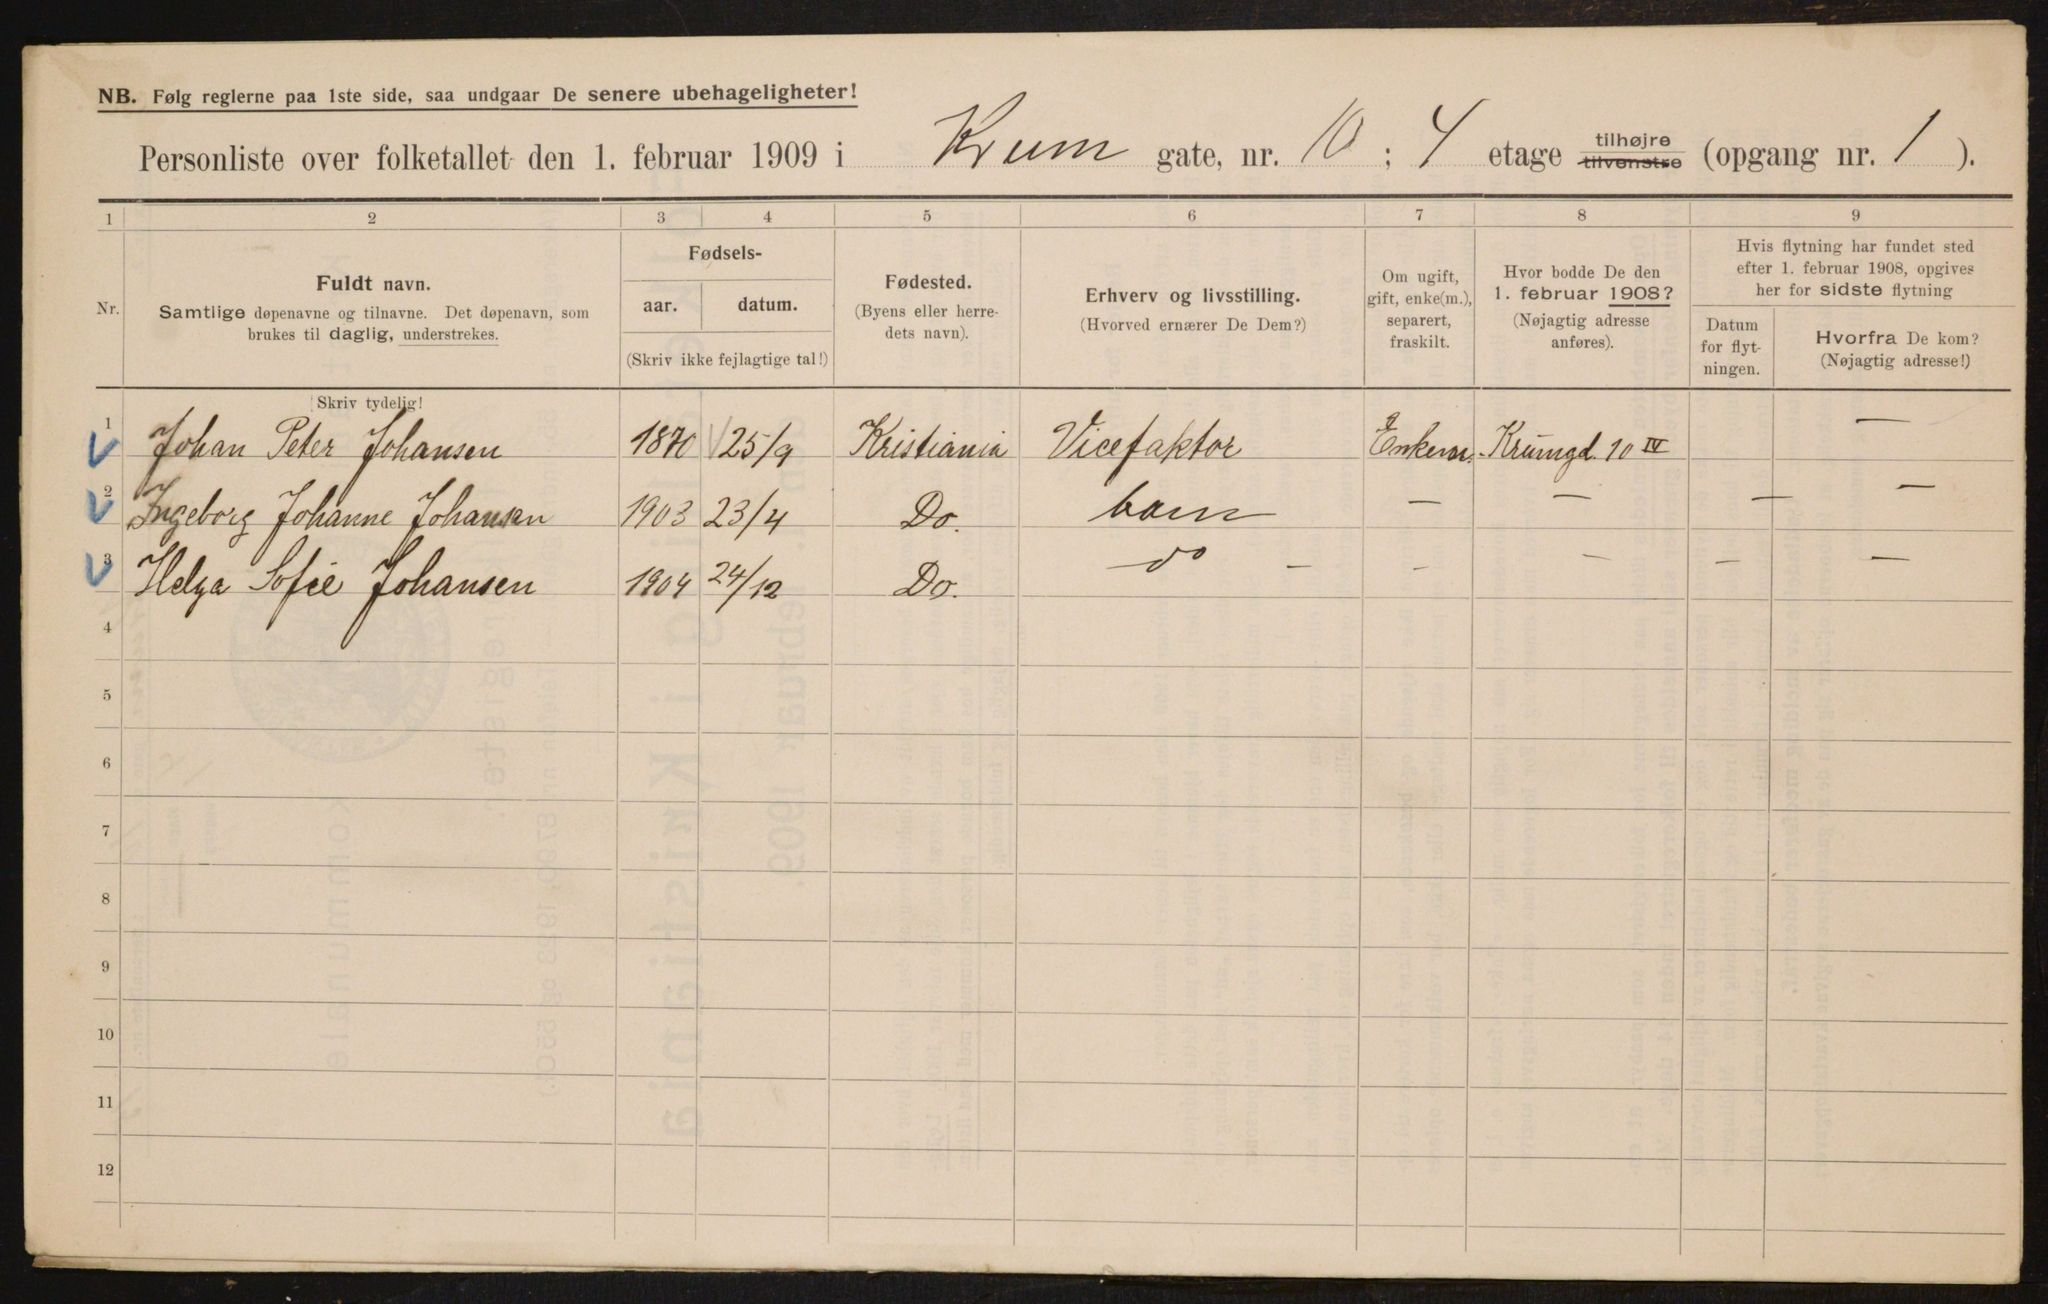 NB. Følg reglerne paa 1ste side, saa undgaar De senere ubehageligheter!
Personliste over folketallet den 1. februar 1909 i Krum gate, nr. 10 ; 4 etage tilhøjre tilvenstre (opgang nr. 1 ).
1 2 3 4 5 6 7 8 9
Nr.
Fuldt navn.
Samtlige døpenavne og tilnavne. Det døpenavn, som
brukes til daglig, understrekes.
Fødsels-
aar. datum.
(Skriv ikke fejlagtige tal!)
Fødested.
(Byens eller herre-
dets navn).
Erhverv og livsstilling.
(Hvorved ernærer De Dem?)
Om ugift,
gift, enke(m.),
separert,
fraskilt.
Hvor bodde De den
1. februar 1908?
(Nøjagtig adresse
anføres).
Hvis flytning har fundet sted
efter 1. februar 1908, opgives
her for sidste flytning
Datum
for flyt-
ningen.
Hvorfra De kom?
(Nøjagtig adresse!)
Skriv tydelig!
1 Johan Peter Johansen 1870 25/9 Kristiania Vicefaktor Enkem. Krumgd. 10 IV —
2 Ingeborg Johanne Johansen 1903 23/4 Do. barn — — — —
3 Helga Sofie Johansen 1904 24/12 Do. do — — — — —
4
5
6
7
8
9
10
11
12